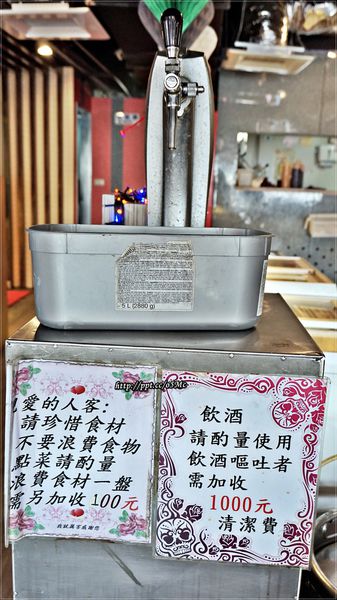 5 L (2880 g)
http://ppt.cc/o5Mc
愛的人客:
請珍惜食材
不要浪費食物
點菜請酌量
浪費食材一盤
需另加收100元
飲酒
請酌量使用
飲酒嘔吐者
需加收
1000元
清潔費